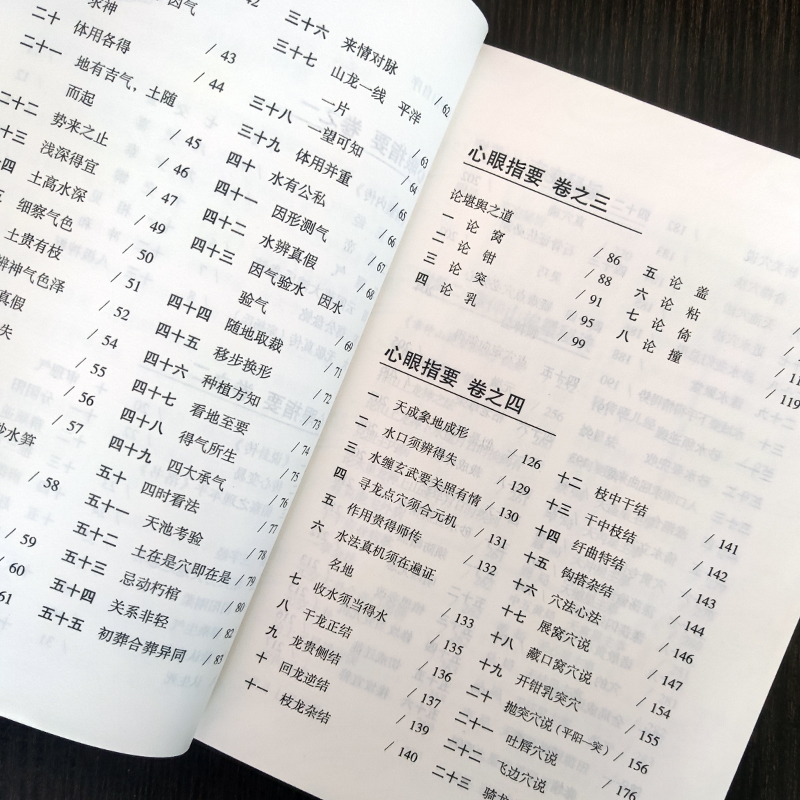 因气
求神 / 42
二十 体用各得 / 43
二十一 地有吉气，土随
而起 / 44
二十二 势来之止 / 45
十三 浅深得宜 / 46
四 土高水深 / 47
细察气色 / 49
土贵有枝 / 50
辨神气色泽 / 51
真假 / 52
失 / 54
/ 55
/ 56
/ 57
砂水算 / 58
/ 59
/ 60
61
三十六 来情对脉 / 62
三十七 山龙一线 平洋
一片 / 63
三十八 一望可知 / 64
三十九 体用并重 / 65
四十 水有公私 / 66
四十一 因形测气 / 67
四十二 水辨真假 / 68
四十三 因气验水 因水
验气 / 69
四十四 随地取裁 / 71
四十五 移步换形 / 72
四十六 种植方知 / 73
四十七 看地至要 / 74
四十八 得气所生 / 75
四十九 四大承气 / 76
五十 四时看法 / 77
五十一 天池考验 / 78
五十二 土在是穴即在是 / 79
五十三 忌动朽棺 / 80
五十四 关系非轻 / 82
五十五 初葬合葬异同 / 83
心眼指要 卷之三
论堪舆之道 / 86
一 论 窝 / 88
二 论 钳 / 91
三 论 突 / 95
四 论 乳 / 99
五 论 盖
六 论 粘
七 论 倚
八 论 撞 / 119
心眼指要 卷之四
一 天成象地成形 / 126
二 水口须辨得失 / 129
三 水缠玄武要关照有情 / 130
四 寻龙点穴须合元机 / 131
五 作用贵得师传 / 132
六 水法真机须在遍证
名地 / 133
七 收水须当得水 / 135
八 干龙正结 / 136
九 龙贵侧结 / 137
十 回龙逆结 / 139
十一 枝龙杂结 / 140
十二 枝中干结 / 141
十三 干中枝结 / 142
十四 纡曲特结 / 143
十五 钩搭杂结 / 144
十六 穴法心法 / 146
十七 展窝穴说 / 147
十八 藏口窝穴说 / 154
十九 开钳乳突穴 / 155
二十 抛突穴说（平阳一突） / 156
二十一 吐唇穴说 / 176
二十二 飞边穴说
二十三 骑龙